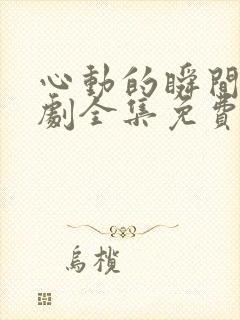 心動的瞬間
劇全集免費
烏欖